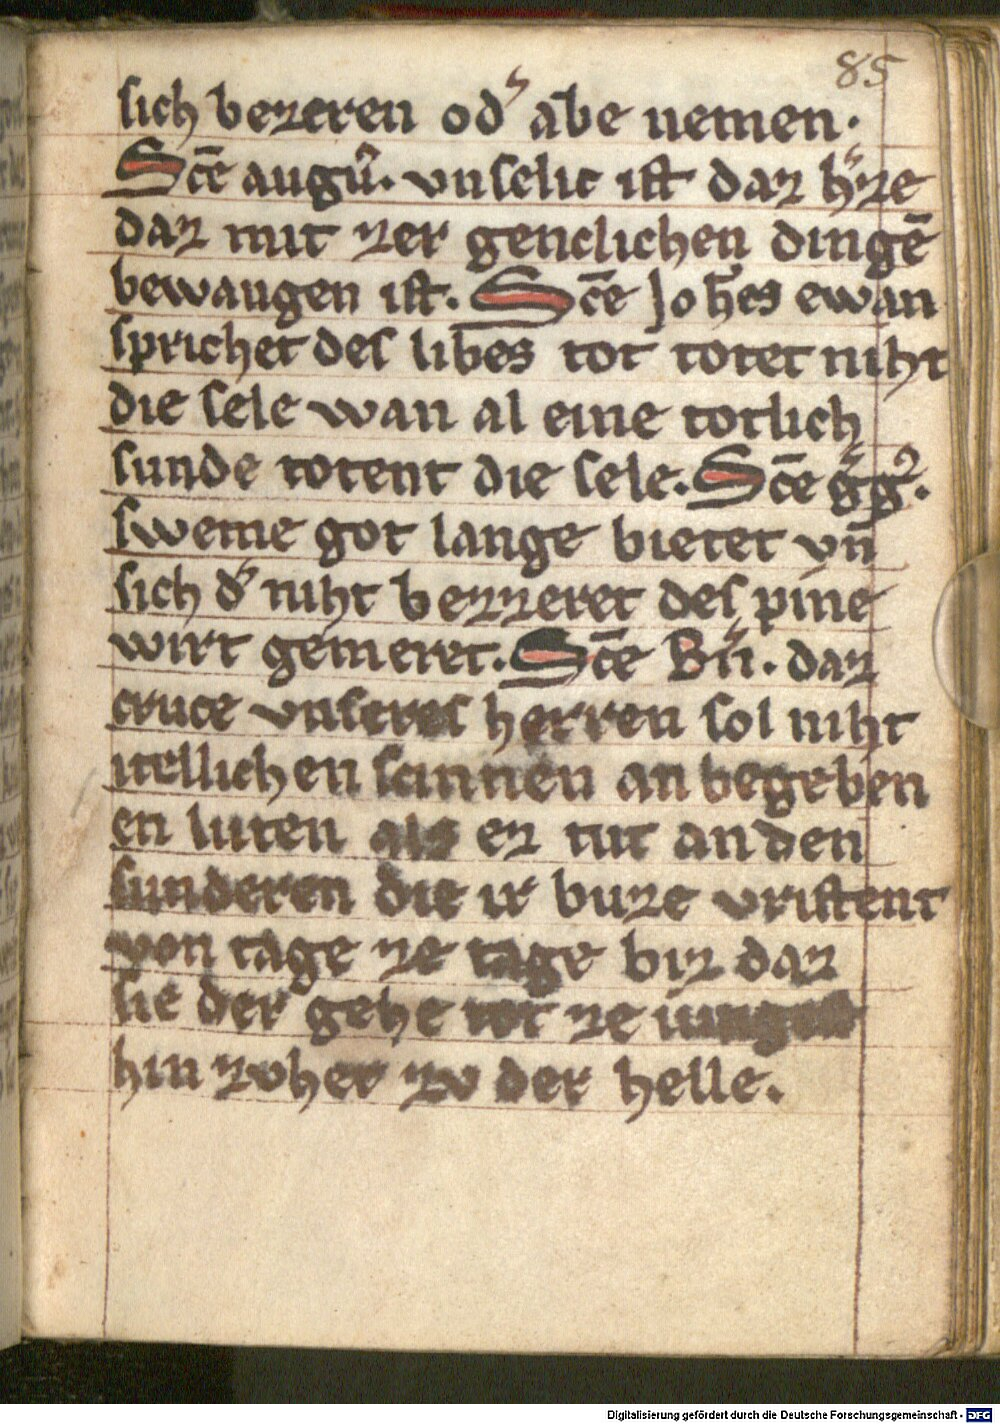 85
sich bezeren od᾽ abe nemen.
Sc̄e augu᷒. vnselic ist daz h᾽ze
daz mit zer genclichen dingē
bewangen ist. Sc̄e Joh̄es ewan
sprichet des libes tot totet niht
die sele wan al eine totlich
sunde totent die sele. Sc̄e g᾽g᷒.
sweme got lange bietet vn̄
sich d᾽ niht bezzeret des pine
wirt gemeret. Sc̄e B᾽n. daz
cruce vnseres herren sol niht
itellichen scinnen an begeben
en luten als ez tut an den
sunderen die ir buze vristent
von tage ze tage biz daz
sie der gehe tot ze iungest
hin zvher zv der helle.
Digitalisierung gefördert durch die Deutsche Forschungsgemeinschaft - DFG